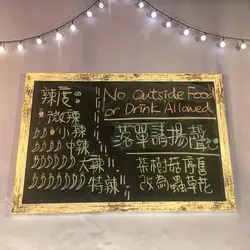 辣度:
微辣
小辣
中辣
大辣
特辣
No Outside Food
or Drink Allowed
落單請揚聲
茶樹菇停售
改為蟲草花